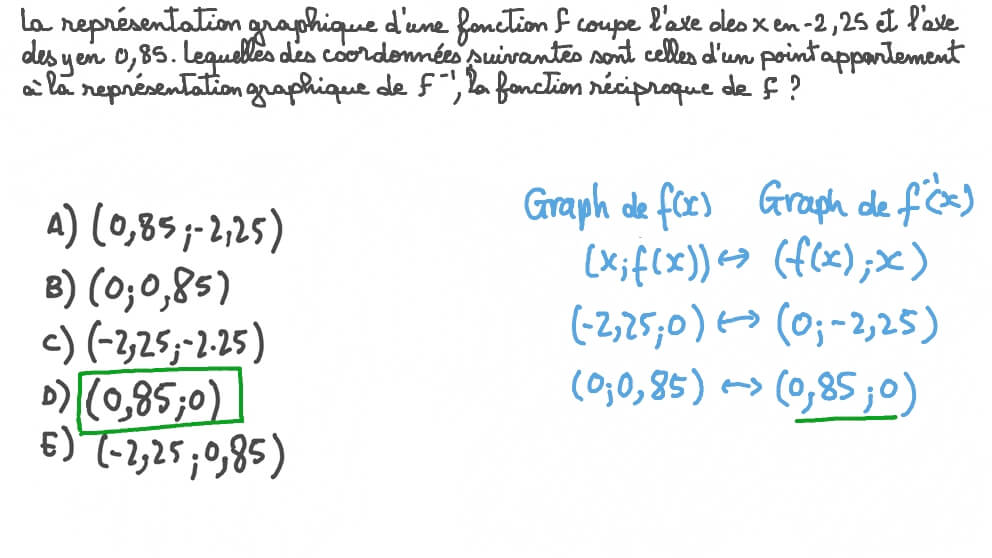 La représentation graphique d'une fonction f coupe l'axe des x en -2,25 et l'axe
des y en 0,85. Lequelles des coordonnées suivantes sont celles d'un point appartement
à la représentation graphique de f⁻¹, la fonction réciproque de f ?
A) (0,85 ; -2,25)
B) (0; 0,85)
C) (-2,25; -2.25)
D) (0,85; 0)
E) (-2,25 ; 0,85)
Graph de f(x) Graph de f⁻¹(x)
(x; f(x)) ↔ (f(x) ; x)
(-2,25; 0) ↔ (0; -2,25)
(0; 0,85) ↔ (0,85 ; 0)